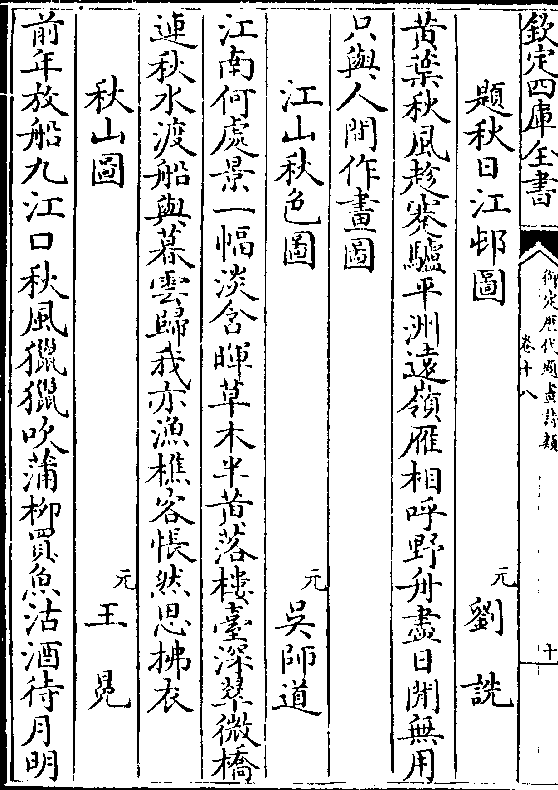 欽定四庫全書
御定歴代題畫詩類
卷十八
十
題秋日江邨圖
元 劉詵
黄葉秋風趁蹇驢平洲遠嶺雁相呼野舟盡日閒無用
只與人間作畫圖
江山秋色圖
元 吳師道
江南何處景一幅淡含暉草木半黄落樓臺深翠微橋
連秋水渡船與暮雲歸我亦漁樵客悵然思拂衣
秋山圖
元 王冕
前年放船九江口秋風獵獵吹蒲柳買魚沽酒待月明